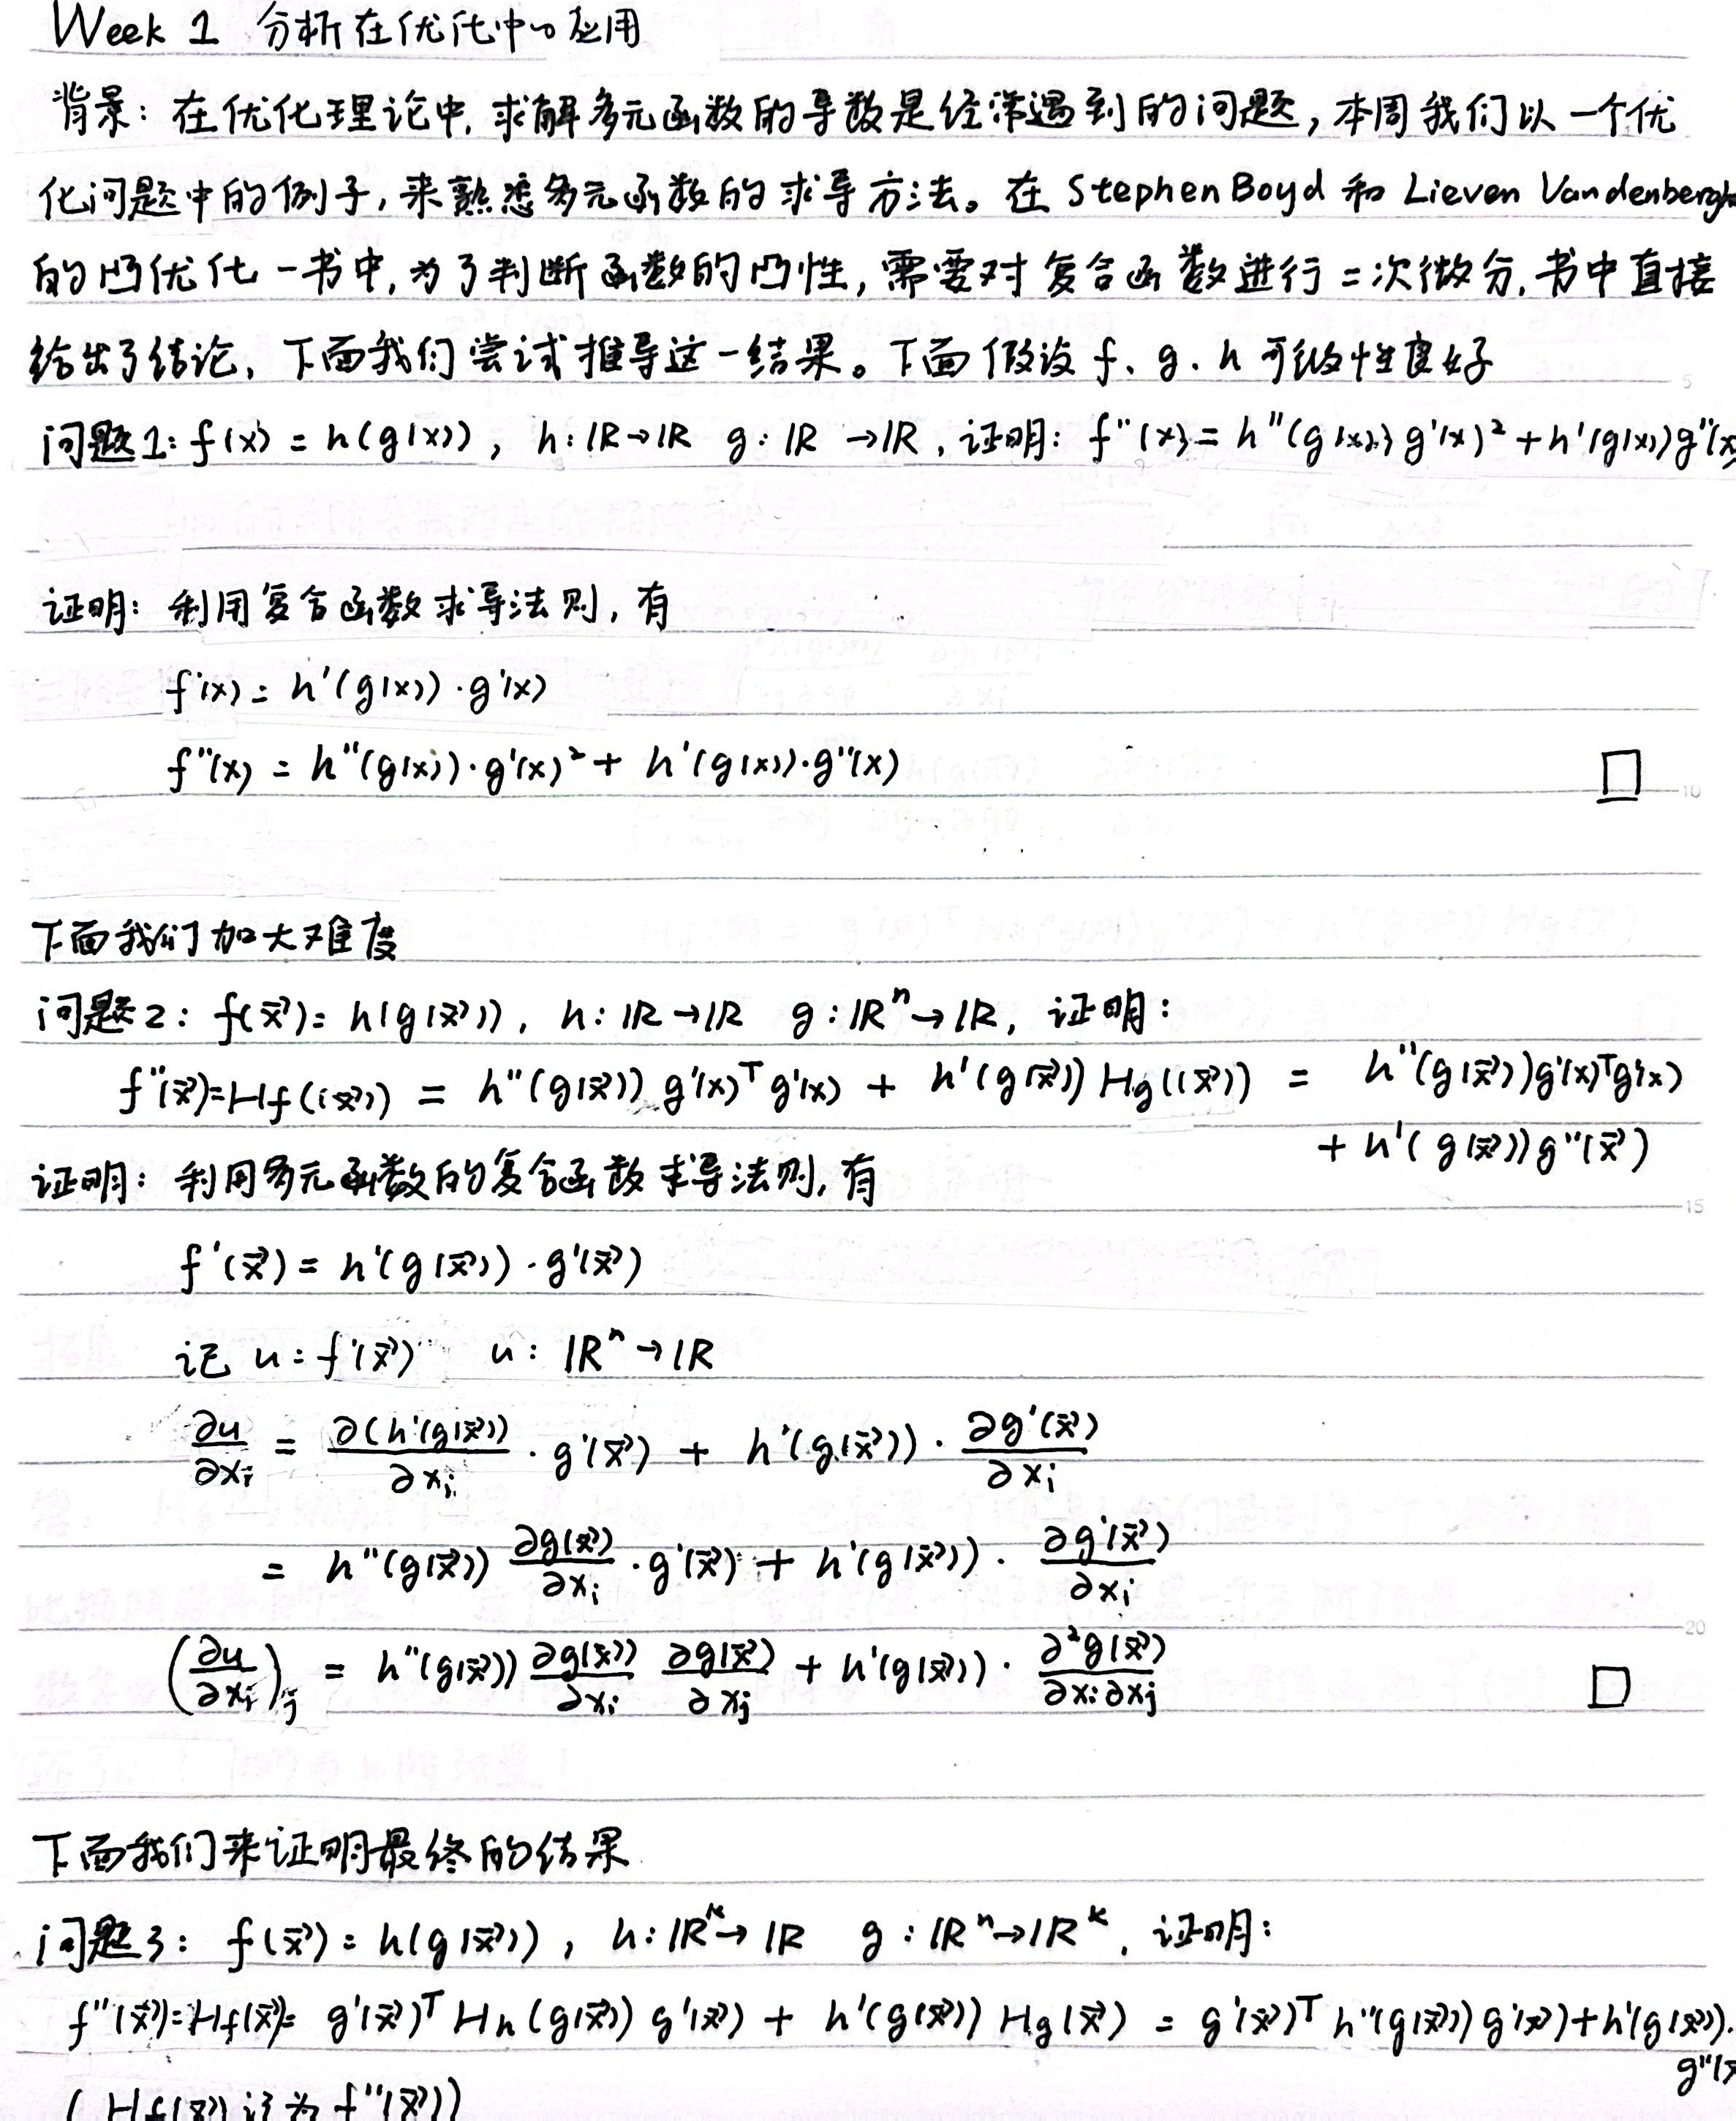 Week 1 分析在优化中の应用
背景：在优化理论中，求解多元函数的导数是经常遇到的问题，本周我们以一个优
化问题中的例子，来熟悉多元函数的求导方法。在 Stephen Boyd 和 Lieven Vandenbergh
的凸优化一书中，为了判断函数的凸性，需要对复合函数进行二次微分，书中直接
给出了结论，下面我们尝试推导这一结果。下面假设 f、g、h 可微性良好
问题1: f(x) = h(g(x)), h: ℝ→ℝ g: ℝ→ℝ, 证明: f''(x) = h''(g(x)) g'(x)² + h'(g(x)) g''(x)
证明: 利用复合函数求导法则, 有
f'(x) = h'(g(x))·g'(x)
f''(x) = h''(g(x))·g'(x)² + h'(g(x))·g''(x) □
下面我们加大难度
问题2: f(x⃗) = h(g(x⃗)), h: ℝ→ℝ g: ℝⁿ→ℝ, 证明:
f''(x⃗) = Hf((x⃗)) = h''(g(x⃗)) g'(x)ᵀ g'(x) + h'(g(x⃗)) Hg((x⃗)) = h''(g(x⃗)) g'(x)ᵀ g'(x)
+ h'(g(x⃗)) g''(x⃗)
证明: 利用多元函数的复合函数求导法则, 有
f'(x⃗) = h'(g(x⃗))·g'(x⃗)
记 u = f'(x⃗) u: ℝⁿ→ℝ
∂u/∂xᵢ = ∂(h'(g(x⃗))/∂xᵢ · g'(x⃗) + h'(g(x⃗)) · ∂g'(x⃗)/∂xᵢ
= h''(g(x⃗)) ∂g(x⃗)/∂xᵢ · g'(x⃗) + h'(g(x⃗)) · ∂g'(x⃗)/∂xᵢ
(∂u/∂xᵢ)ⱼ = h''(g(x⃗)) ∂g(x⃗)/∂xᵢ ∂g(x⃗)/∂xⱼ + h'(g(x⃗)) · ∂²g(x⃗)/∂xᵢ∂xⱼ □
下面我们来证明最终的结果
问题3: f(x⃗) = h(g(x⃗)), h: ℝᵏ→ℝ g: ℝⁿ→ℝᵏ, 证明:
f''(x⃗) = Hf(x⃗) = g'(x⃗)ᵀ Hh(g(x⃗)) g'(x⃗) + h'(g(x⃗)) Hg(x⃗) = g'(x⃗)ᵀ h''(g(x⃗)) g'(x⃗) + h'(g(x⃗))·
g''(x
(Hf(x⃗) 记为 f''(x⃗))
5
10
15
20